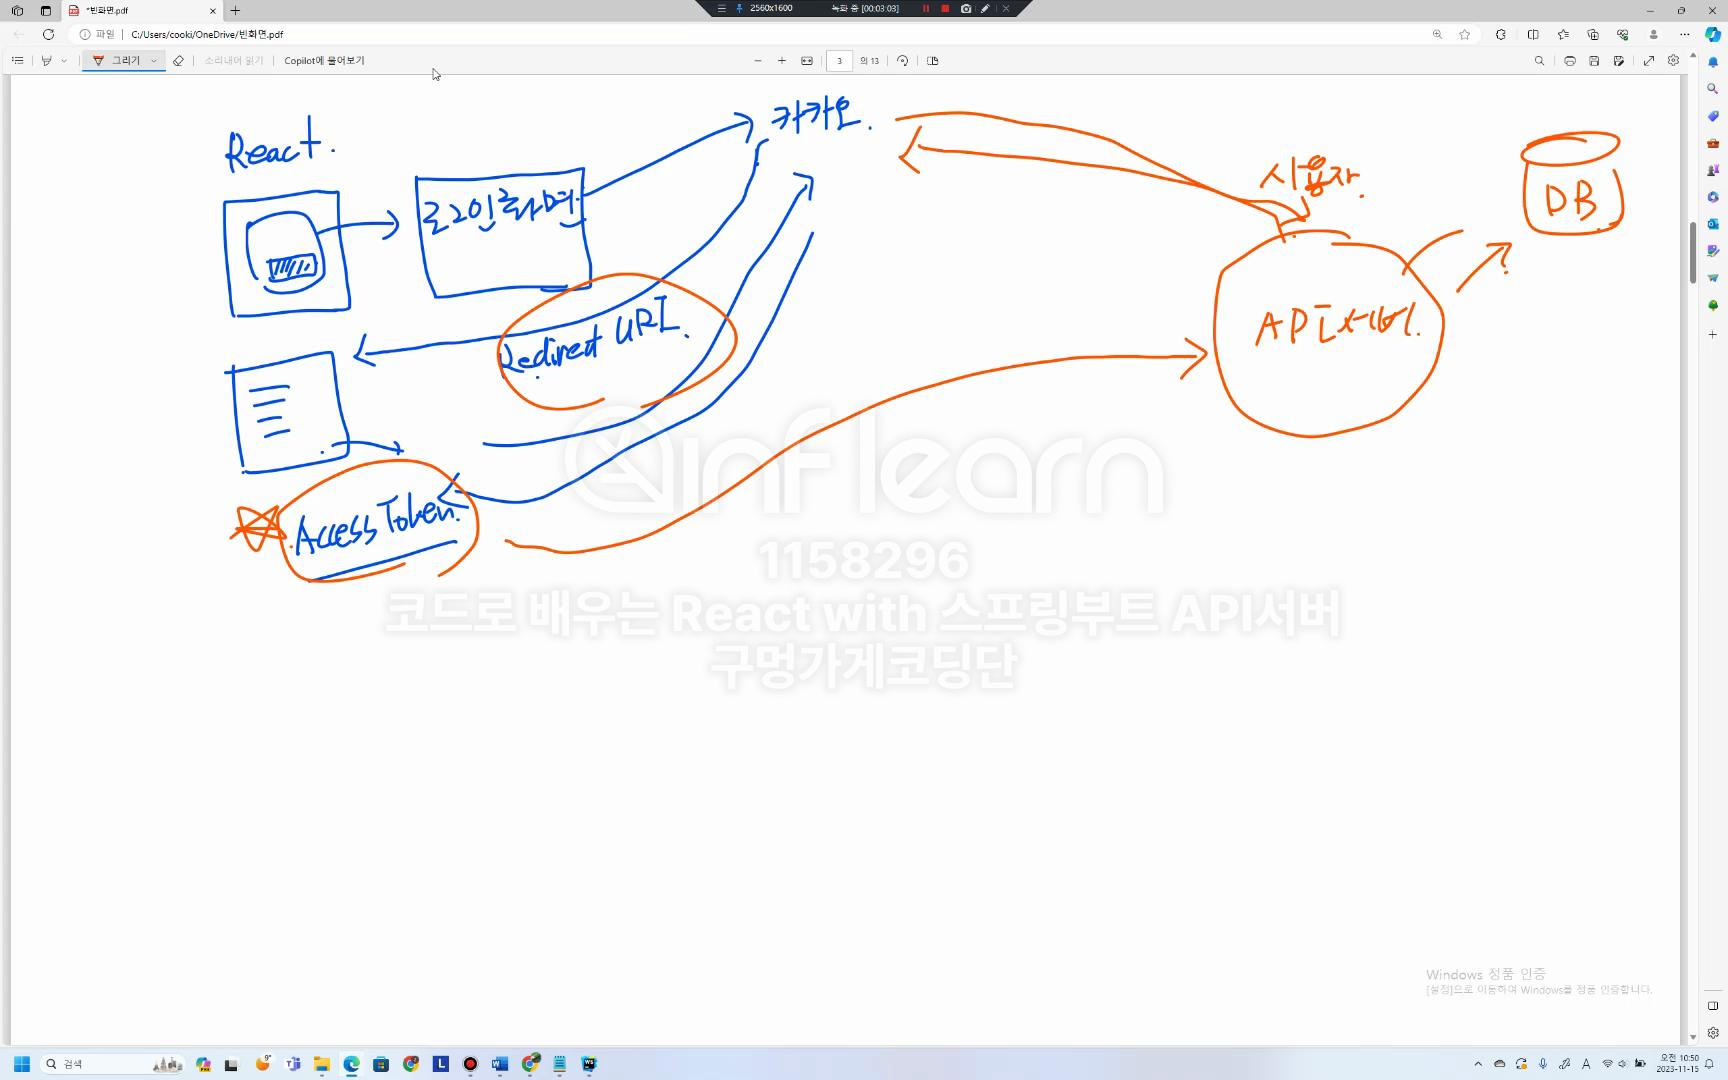 *빈화면.pdf
2560x1600
녹화 중 [00:03:03]
파일
C:/Users/cooki/OneDrive/빈화면.pdf
그리기
소리내어 읽기
Copilot에 물어보기
3
의 13
React.
카카오.
로그인화면.
사용자.
DB
Redirect URI.
API서버.
?
Access Token.
inflearn
1158296
코드로 배우는 React with 스프링부트 API서버
구멍가게코딩단
Windows 정품 인증
[설정]으로 이동하여 Windows를 정품 인증합니다.
검색
9°
A
오전 10:50
2023-11-15